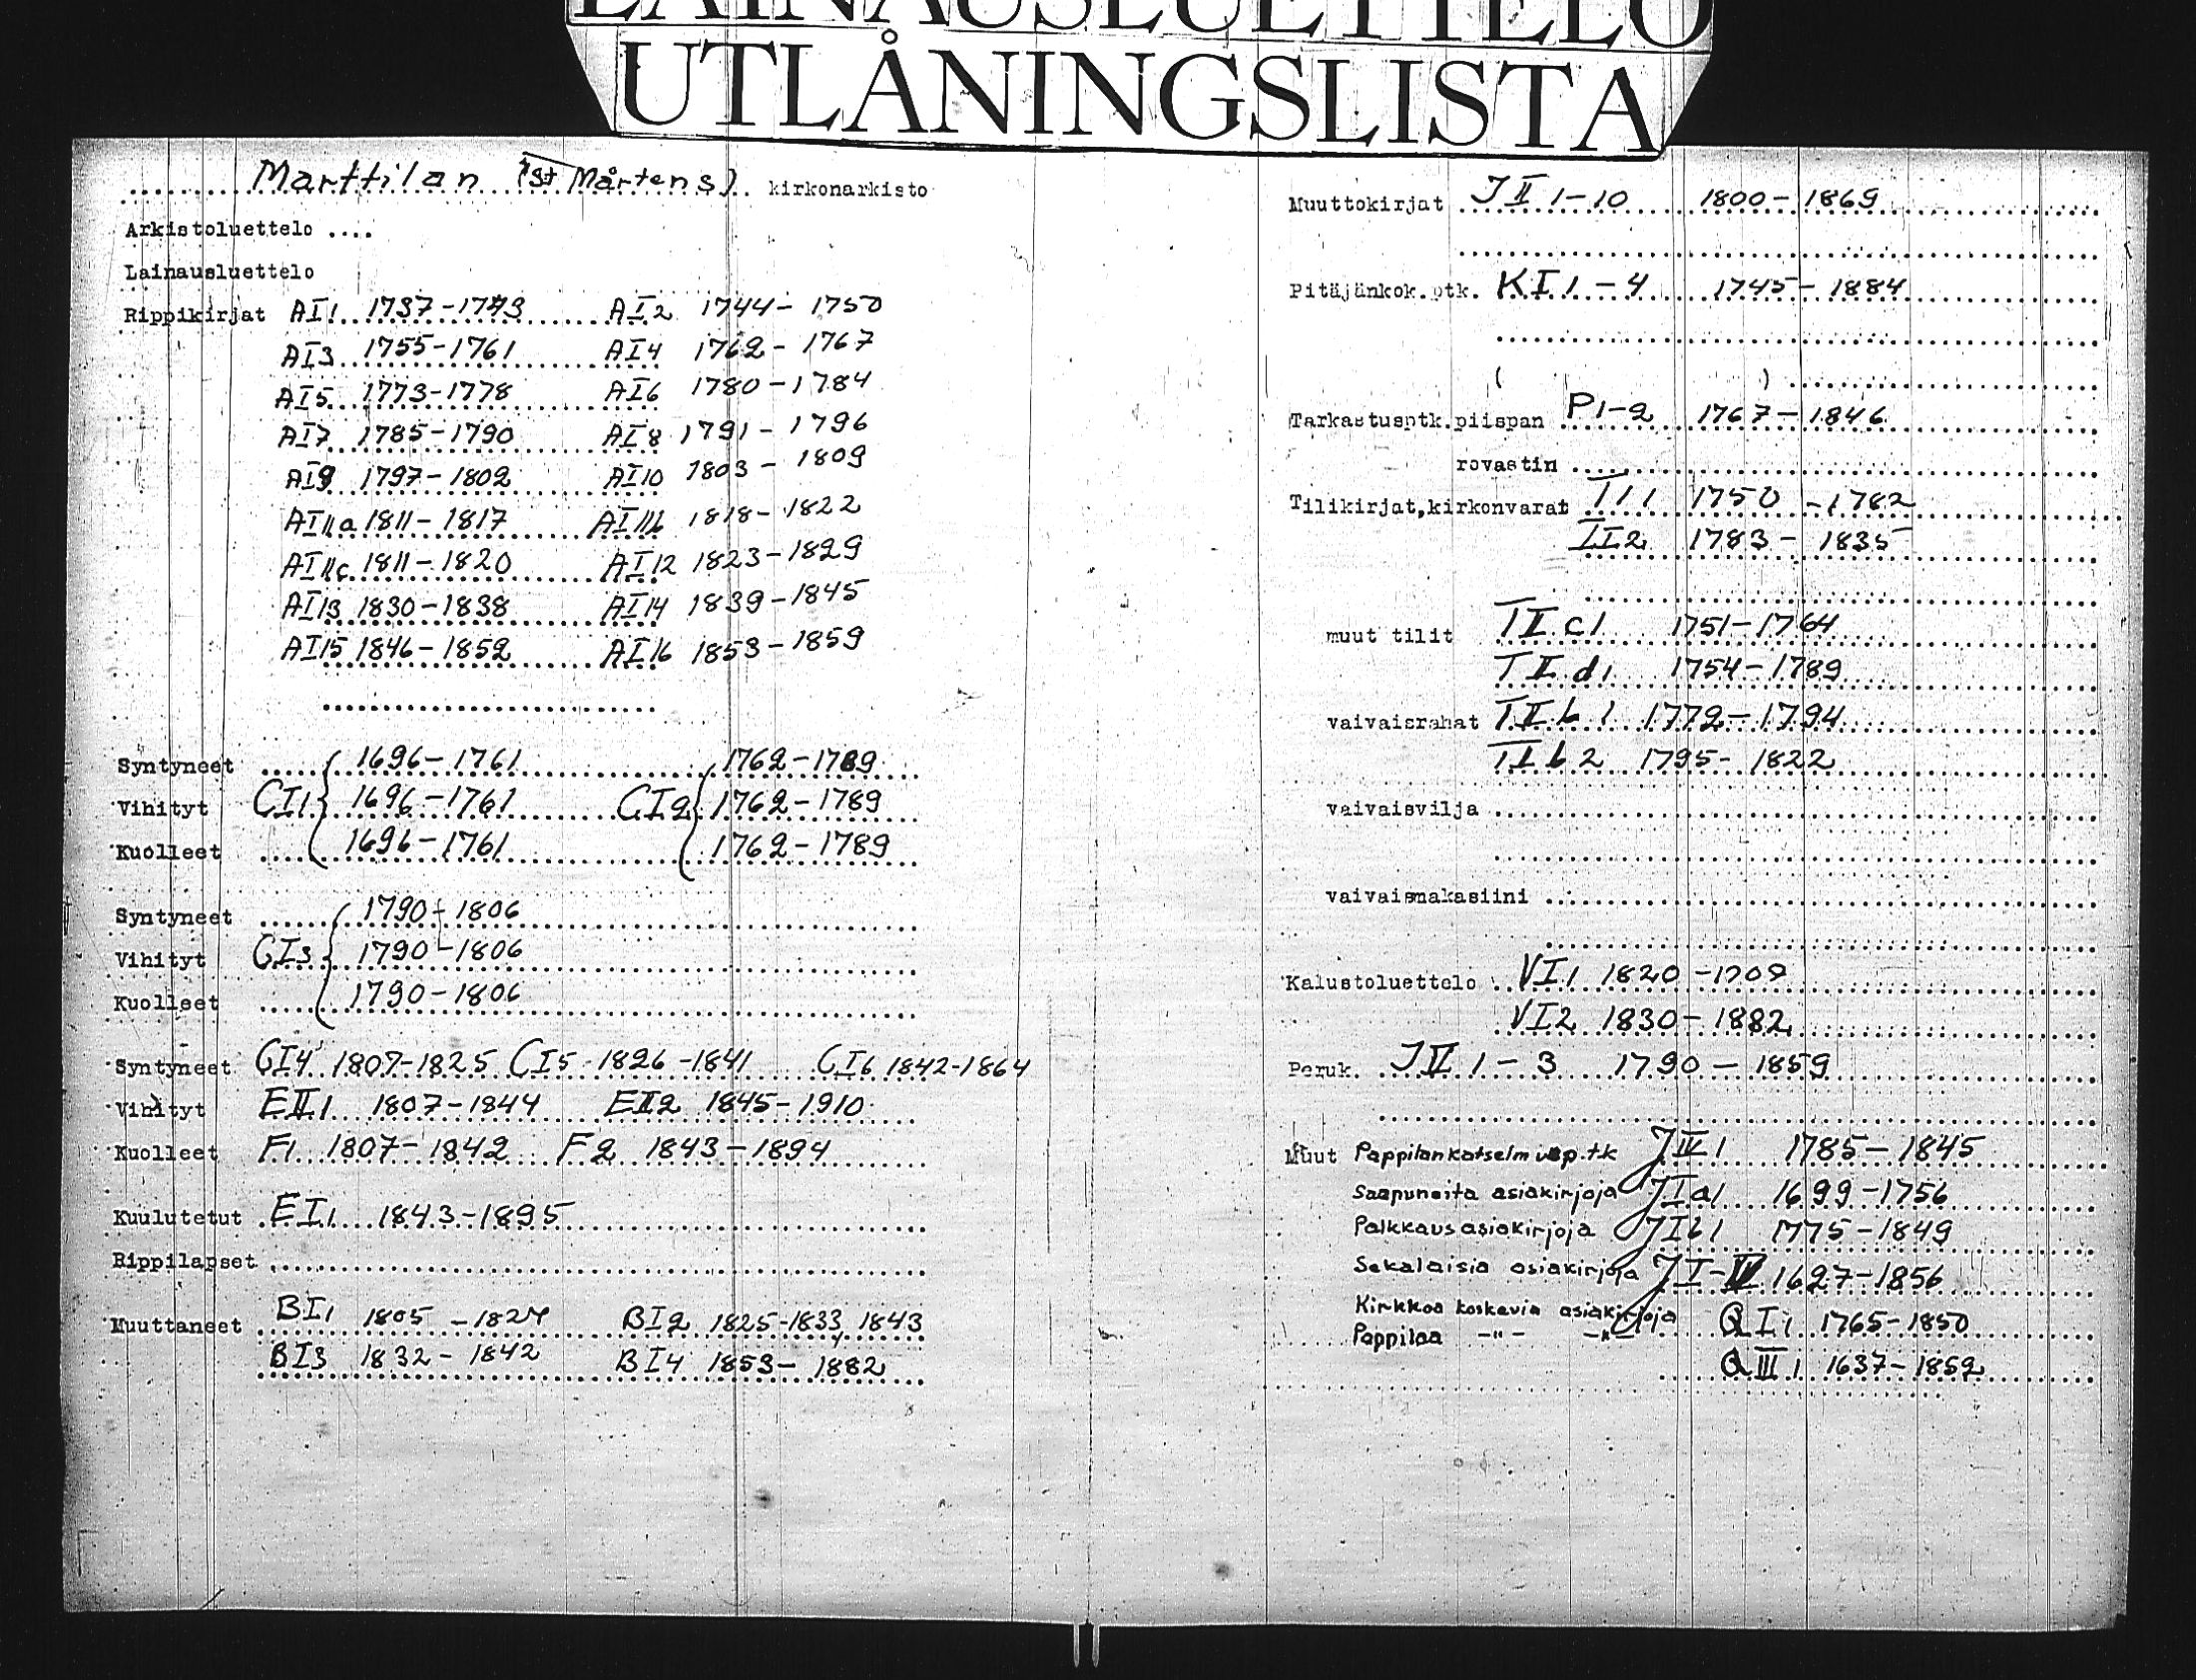 LAINAUSLUETTELO
UTLÅNINGSLISTA
Marttilan (St Mårtens) kirkonarkisto
Arkistoluettelo ....
Lainausluettelo
Rippikirjat AI1 1737-1743 AI2 1744-1750
AI3 1755-1761 AI4 1762-1767
AI5 1773-1778 AI6 1780-1784
AI7 1785-1790 AI8 1791-1796
AI9 1797-1802 AI10 1803-1809
AI11a 1811-1817 AI11b 1818-1822
AI11c 1811-1820 AI12 1823-1829
AI13 1830-1838 AI14 1839-1845
AI15 1846-1852 AI16 1853-1859
Syntyneet 1696-1761 1762-1789
Vihityt CI1 1696-1761 CI2 1762-1789
Kuolleet 1696-1761 1762-1789
Syntyneet 1790-1806
Vihityt CI3 1790-1806
Kuolleet 1790-1806
Syntyneet CI4 1807-1825 CI5 1826-1841 CI6 1842-1864
Vihityt EII1 1807-1844 EII2 1845-1910
Kuolleet F1 1807-1842 F2 1843-1894
Kuulutetut EI1 1843-1895
Rippilapset
Muuttaneet BI1 1805-1824 BI2 1825-1833, 1843
BI3 1832-1842 BI4 1853-1882
Muuttokirjat JII 1-10 1800-1869
Pitäjänkok.ptk. KI 1-4 1745-1884
( )
Tarkastusptk.piispan P1-2 1767-1846
rovastin
Tilikirjat,kirkonvarat TI1 1750-1782
TI2 1783-1835
muut tilit TIIc1 1751-1764
TIId1 1754-1789
vaivaisrahat TIIb1 1772-1794
TIIb2 1795-1822
vaivaisvilja
vaivaismakasiini
Kalustoluettelo VI1 1820-
VI2 1830-1882
Peruk. JV 1-3 1790-1859
Muut Pappilankatselmusp.tk JIV1 1785-1845
Saapuneita asiakirjoja JIa1 1699-1756
Palkkausasiakirjoja JIb1 1775-1849
Sekalaisia asiakirjoja JI- 1627-1856
Kirkkoa koskevia asiakirjoja QI1 1765-1850
Pappilaa -"- -"-
QIII1 1637-1852